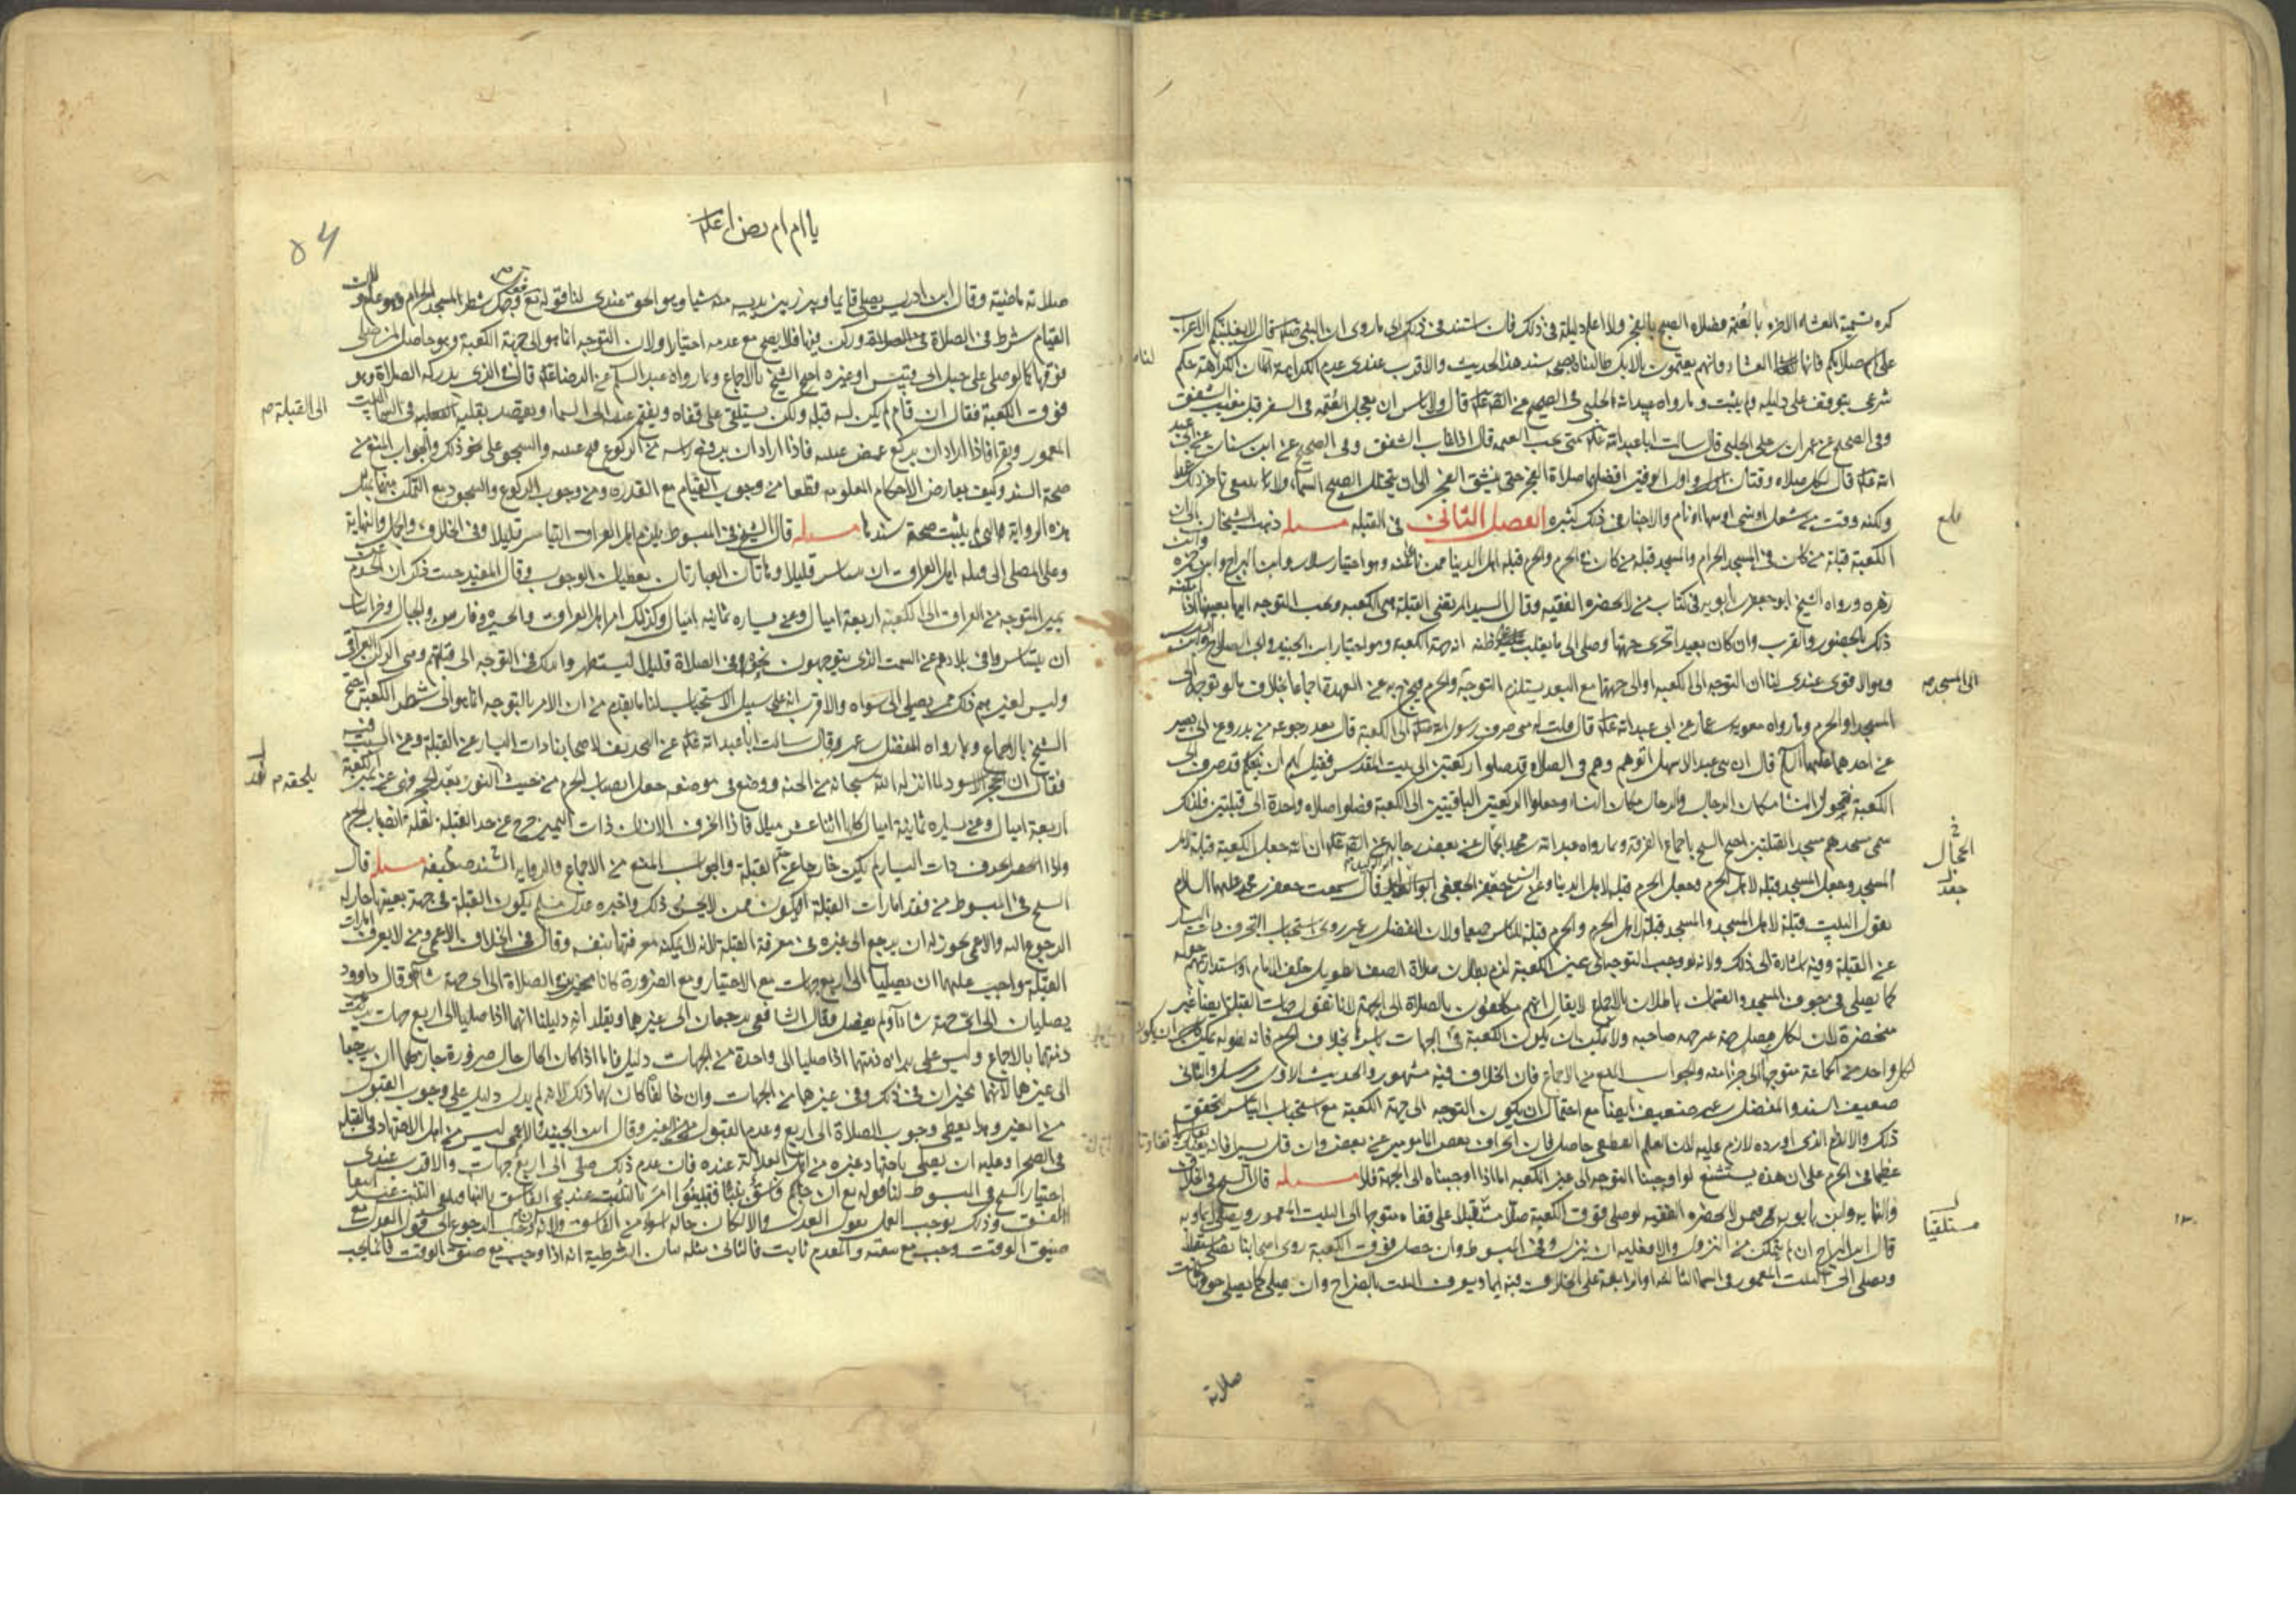 كره تسمية العشاء الاخرة بالعتمة وصلاة الصبح بالفجر ولا اعلم دليله في ذلك فان استند في ذلك الى ما روى ان النبي قال لا يغلبنكم الاعراب
على اسم صلاتكم فانها العشاء وانهم يعتمون بالابل طالبناه بصحة سند هذا الحديث والاقرب عندي عدم الكراهة لنا ان الكراهة حكم
شرعي يتوقف على دليله ولم يثبت وما رواه عبيد الله الحلبي في الصحيح عن قال ولا باس ان يعجل العتمة في السفر قبل مغيب الشفق
وفي الصحيح عن عمران بن علي الحلبي قال سالت ابا عبد الله متى يجب العتمة قال اذا غاب الشفق وفي الصحيح عن ابن سنان عن ابي عبد
الله قال لكل صلاة وقتان واول الوقتين افضلهما صلاة الفجر حتى ينشق الفجر الى ان يتجلل الصبح السماء ولا ينبغي تاخير ذلك عمدا
ولكنه وقت من شغل او نسي او سها او نام والاخبار في ذلك كثيرة الفصل الثاني في القبلة مسئله ذهب الشيخان الى ان
الكعبة قبلة من كان في المسجد الحرام والمسجد قبلة من كان في الحرم والحرم قبلة اهل الدنيا ممن نأى عنه وهو اختيار سلار وابن البراج وابن حمزة وابن
زهرة ورواه الشيخ ابو جعفر بن بابويه في كتاب من لا يحضره الفقيه وقال السيد المرتضى القبلة هي الكعبة ويجب التوجه اليها بعينها اذا امكنه
ذلك بالحضور والقرب وان كان بعيدا تحرى جهتها وصلى الى ما يغلب على ظنه انه جهة الكعبة وهو اختيار ابن الجنيد وابي الصلاح وابن ادريس
وهو الاقوى عندي لنا ان التوجه الى الكعبة او الى جهتها مع البعد يستلزم التوجه والحرم فيخرج به عن العهدة اجماعا بخلاف ما لو توجه الى
المسجد او الحرم وما رواه معوية بن عمار عن ابي عبد الله قال قلت له متى صرف رسول الله الى الكعبة قال بعد رجوعه من بدر وعن ابي بصير
عن احدهما عليهما السلام قال ان بني عبد الاشهل اتوهم وهم في الصلاة قد صلوا ركعتين الى بيت المقدس فقيل لهم ان نبيكم قد صرف الى
الكعبة فتحول النساء مكان الرجال والرجال مكان النساء وجعلوا الركعتين الباقيتين الى الكعبة فصلوا صلاة واحدة الى قبلتين فلذلك
سمي مسجدهم مسجد القبلتين احتج الشيخ باجماع الفرقة وما رواه عبد الله بن محمد الجمال عن بعض رجاله عن ان الله جعل الكعبة قبلة لاهل
المسجد وجعل المسجد قبلة لاهل الحرم وجعل الحرم قبلة لاهل الدنيا وعن بشر بن جعفر الجعفي ابو الوليد قال سمعت جعفر بن محمد عليهما السلام
يقول البيت قبلة لاهل المسجد والمسجد قبلة لاهل الحرم والحرم قبلة للناس جميعا ولان المفضل بن عمر روى استحباب التحرف ذات اليسار
عن القبلة وفيه اشارة الى ذلك ولانه لو وجب التوجه الى عين الكعبة لزم بطلان صلاة الصف الطويل خلف الامام او استدارتهم حوله
كما يصلى في جوف المسجد والقسمان باطلان بالاجماع لا يقال انهم مكلفون بالصلاة الى الجهة لانا نقول جهات القبلة ايضا غير
منحصرة لان لكل مصل جهة غير جهة صاحبه ولا يمكن ان يكون الكعبة في الجهات باسرها بخلاف الحرم فانه لطوله يمكن ان يكون
كل واحد من الجماعة متوجها الى جزء منه والجواب المنع من الاجماع فان الخلاف فيه مشهور والحديث الاول مرسل والثاني
ضعيف السند والمفضل بن عمر ضعيف ايضا مع احتمال ان يكون التوجه الى جهة الكعبة مع استحباب التياسر لتحقق
ذلك والالزام الذي اورده لازم عليه لان العلم القطعي حاصل فان انحراف بعض المامومين عن بعض وان قل يسيرا فانه يفيد تفاوتا
عظيما في الحرم على ان هذه يستشنع لو اوجبنا التوجه الى عين الكعبة اما اذا اوجبناه الى الجهة فلا مسئله قال الشيخ في الخلاف
والنهاية وابن بابويه في من لا يحضره الفقيه لو صلى فوق الكعبة صلى مستلقيا على قفاه متوجها الى البيت المعمور ويصلي ايماء وبه
قال ابن البراج ان لم يتمكن من النزول والا فعليه ان ينزل وفي المبسوط وان حصل فوق الكعبة روى اصحابنا يصلي مستلقيا
ويصلي الى البيت المعمور في السماء الثالثة او الرابعة على الخلاف فيه ايماء ويعرف البيت بالضراح وان صلى كما يصلي جوفها كانت
الى المسجد
الحجال
مستلقيا
صلاته
يا امام رضا
54
صلاته ماضية وقال ابن ادريس يصلي قائما ويبرز بين يديه منه شيئا وهو الحق عندي لنا قوله تع فول وجهك شطر المسجد الحرام وهو عام ولان
القيام شرط في الصلاة وركن فيها فلا يصح مع عدمه اختيارا ولان التوجه انما هو الى جهة الكعبة وهو حاصل لمن صلى
فوقها كما لو صلى على جبل ابي قبيس او غيره احتج الشيخ بالاجماع وبما رواه عبد السلام عن الرضا قال في الذي يدركه الصلاة وهو
فوق الكعبة فقال ان قام لم يكن له قبلة ولكن يستلقي على قفاه ويفتح عينيه الى السماء ويقصد بقلبه القبلة في السماء البيت
المعمور ويقرا فاذا اراد ان يركع غمض عينيه فاذا اراد ان يرفع راسه من الركوع فتح عينيه والسجود على نحو ذلك والجواب المنع من
صحة السند وكيف يعارض الاحكام المعلومة قطعا من وجوب القيام مع القدرة ومن وجوب الركوع والسجود مع التمكن منهما بمثل
هذه الرواية التي لم يثبت صحة سندها مسئله قال الشيخ في المبسوط يلزم اهل العراق التياسر قليلا وفي الخلاف والجمل والنهاية
وعلى المصلي الى قبلة اهل العراق ان يتياسر قليلا وهاتان العبارتان يعطيان الوجوب وقال المفيد حيث ذكر ان الحرم عن
يمين المتوجه من العراق الى الكعبة اربعة اميال وعن يساره ثمانية اميال وكذلك امر اهل العراق والجزيرة وفارس والجبال وخراسان
ان يتياسروا في بلادهم عن السمت الذي يتوجهون نحوه في الصلاة قليلا ليستظهروا بذلك في التوجه الى قبلتهم وهي الركن العراقي
وليس لغيرهم ذلك ممن يصلي الى سواه والاقرب انه على سبيل الاستحباب لنا ما تقدم من ان الامر بالتوجه انما هو الى شطر الكعبة احتج
الشيخ بالاجماع وبما رواه المفضل بن عمر وقال سالت ابا عبد الله عن التحريف لاصحابنا ذات اليسار عن القبلة وعن السبب فيه
فقال ان الحجر الاسود لما انزله الله سبحانه من الجنة ووضع في موضعه جعل انصاب الحرم من حيث النور نور الحجر فهي عن يمين الكعبة
اربعة اميال وعن يساره ثمانية اميال كلها اثنا عشر ميلا فاذا انحرف الانسان ذات اليمين خرج عن حد القبلة لقلة انصاب الحرم
واذا انحرف ذات اليسار لم يكن خارجا عن حد القبلة والجواب المنع من الاجماع والرواية السند ضعيفة مسئله قال
الشيخ في المبسوط من فقد امارات القبلة او يكون ممن لا يحسن ذلك واخبره عدل مسلم بكون القبلة في جهة بعينها جاز له
الرجوع اليه والاعمى يجوز له ان يرجع الى غيره في معرفة القبلة لانه لا يمكنه معرفتها بنفسه وقال في الخلاف الاعمى ومن لا يعرف امارات
القبلة واجب عليهما ان يصليا الى اربع جهات مع الاختيار ومع الضرورة كانا مخيرين في الصلاة الى اي جهة شاءا وقال داوود
يصليان الى اي جهة شاءا ولم يفصل وقال الشافعي يرجعان الى غيرهما ويقلدانه دليلنا انهما اذا صليا الى اربع جهات برئت
ذمتهما بالاجماع وليس على براءة ذمتهما اذا صليا الى واحدة من الجهات دليل فاما اذا كان الحال حال ضرورة جاز لهما ان يرجعا
الى غيرهما لانهما مخيران في ذلك وفي غيرها من الجهات وان خالفاه كان لهما ذلك لانه لم يدل دليل على وجوب القبول
من الغير وهذا يعطي وجوب الصلاة الى اربع وعدم القبول من الغير وقال ابن الجنيد والاعمى ليس من اهل الاجتهاد في القبلة
في الصحراء وعليه ان يصلي باجتهاد غيره من اهل العدالة عنده فان عدم ذلك صلى الى اربع جهات والاقرب عندي
اختيار الشيخ في المبسوط لنا قوله تع ان جاءكم فاسق بنبا فتبينوا امر بالتثبت عند مجيء الفاسق بالنبا وينتفي التثبت عند انتفاء
الفسق وذلك يوجب العمل بقول العدل والا لكان حاله اسوء من الفاسق ولانه الرجوع الى قول العدل مع
ضيق الوقت وجب مع سعته والمقدم ثابت فالتالي مثله بيان الشرطية انه اذا وجب مع ضيق الوقت فانما يجب
الى القبلة